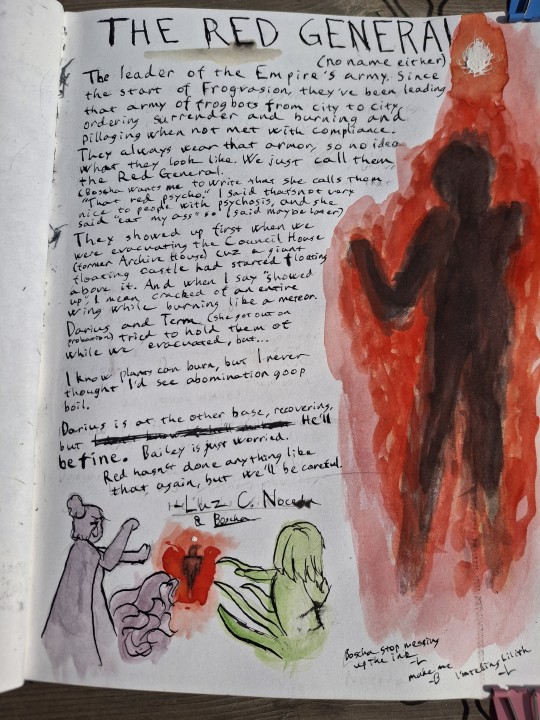 THE RED GENERAL
(no name either)
The leader of the Empire's army. Since
the start of Frogvasion, they've been leading
that army of frogbots from city to city,
ordering surrender and burning and
pillaging when not met with compliance.
They always wear that armor, so no idea
what they look like. We just call them
the Red General.
(Boscha wants me to write that she calls them
"that red psycho." I said thats not very
nice to people with psychosis, and she
said "eat my ass" so I said maybe later)
They showed up first when we
were evacuating the Council House
(former Archive House) cuz a giant
floating castle had started floating
above it. And when I say "showed
up" I mean cracked of an entire
wing while burning like a meteor.
Darius and Terra (she got out on
probation) tried to hold them of
while we evacuated, but...
I know plants can burn, but I never
thought I'd see abomination goop
boil.
Darius is at the other base, recovering,
but He'll
be fine. Bailey is just worried.
Red hasn't done anything like
that again, but we'll be careful.
-Luz C. Noceda
& Boscha
Boscha stop messing
up the ink -L
make me
-B
I'm telling Lilith
-L